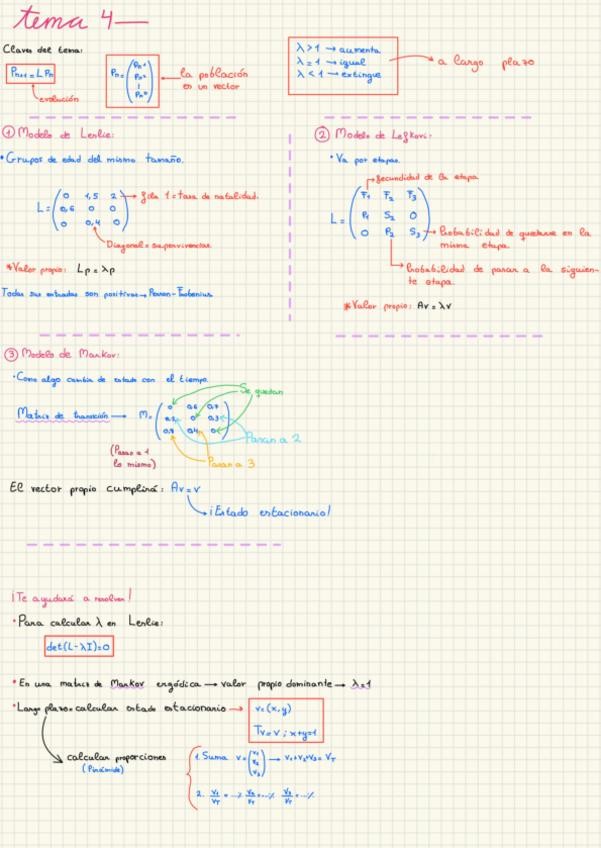 tema 4
Claves del tema:
Pn+1 = L Pn
evolución
Pn = (Pn¹ Pn² ⋮ Pnⁿ)
la población
en un vector
λ > 1 → aumenta
λ = 1 → igual
λ < 1 → extingue
a largo plazo
① Modelo de Leslie:
• Grupos de edad del mismo tamaño.
L = ( 0 1,5 2
0,6 0 0
0 0,4 0 )
fila 1 = tasa de natalidad.
Diagonal = supervivencias.
*Valor propio: Lp = λp
Todas sus entradas son positivas → Perron-Frobenius
② Modelo de Lefkovi:
• Va por etapas.
fecundidad de la etapa
L = ( F₁ F₂ F₃
P₁ S₂ 0
0 P₂ S₃ )
Probabilidad de quedarse en la
misma etapa.
Probabilidad de pasar a la siguien-
te etapa.
*Valor propio: Av = λv
③ Modelo de Markov:
• Como algo cambia de estado con el tiempo.
Se quedan
Matriz de transición → M = ( 0 0,6 0,7
0,2 0 0,3
0,8 0,4 0 )
Pasan a 2
(Pasan a 1
lo mismo)
Pasan a 3
El vector propio cumplirá: Av = v
¡Estado estacionario!
¡Te ayudará a resolver!
• Para calcular λ en Leslie:
det(L-λI)=0
• En una matriz de Markov ergódica → valor propio dominante → λ=1
• Largo plazo = calcular estado estacionario →
v = (x,y)
Tv = v ; x+y=1
calcular proporciones
(Pirámide)
1. Suma v = (v₁ v₂ v₃) → v₁+v₂+v₃ = VT
2. v₁/VT = ...% v₂/VT = ...% v₃/VT = ...%